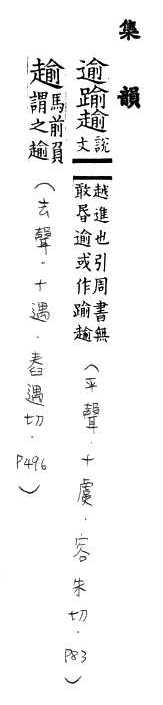 集韻
逾踰趨說文越進也引周書無敢昏逾或作踰趨（平聲．十虞．容朱切．P83）
趨馬前負謂之趨（去聲．十遇．舂遇切．P496）